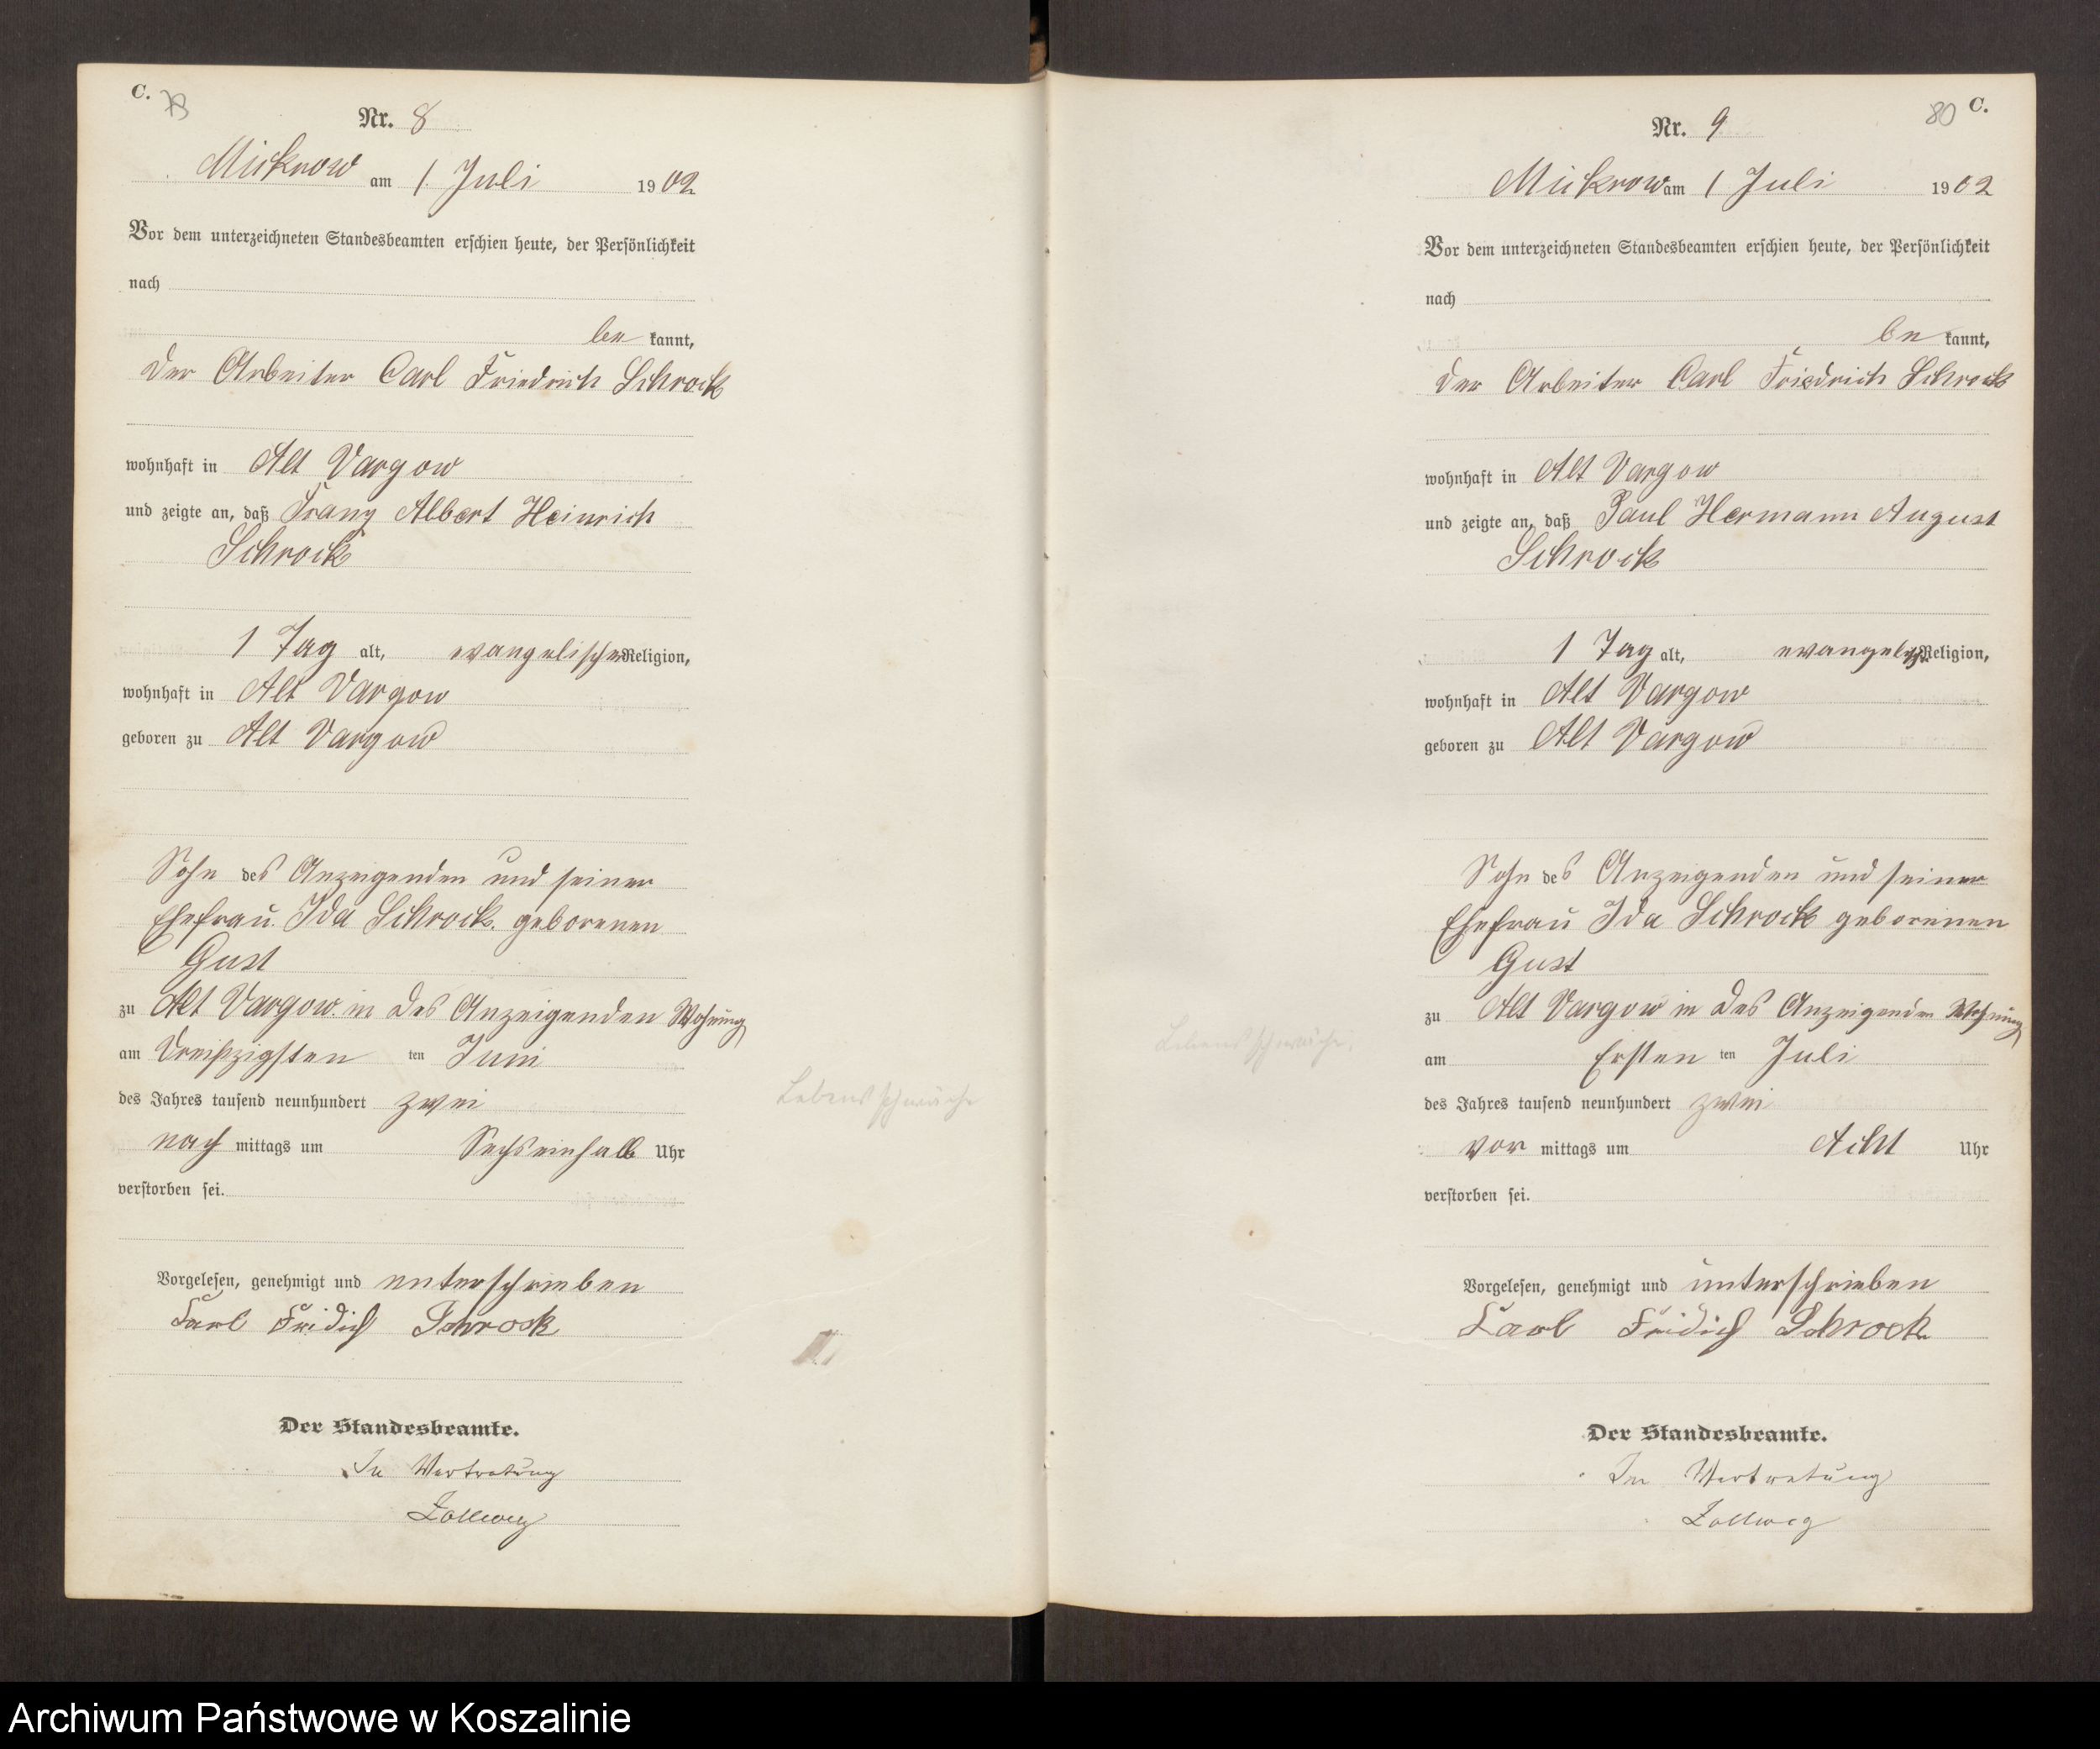 C.
Nr. 8
Mickrow am 1. Juli 1902
Vor dem unterzeichneten Standesbeamten erschien heute, der Persönlichkeit
nach
be kannt,
der Arbeiter Carl Friedrich Schrock
wohnhaft in Alt Vargow
und zeigte an, daß Franz Albert Heinrich
Schrock
1 Tag alt, evangelischer Religion,
wohnhaft in Alt Vargow
geboren zu Alt Vargow
Sohn des Anzeigenden und seiner
Ehefrau Ida Schrock geborenen
Gust
zu Alt Vargow in des Anzeigenden Wohnung
am Dreißzigsten ten Juni
des Jahres tausend neunhundert zwei
nach mittags um Sechseinhalb Uhr
verstorben sei.
Lebensschwäche
Vorgelesen, genehmigt und unterschrieben
Karl Fridich Schrock
Der Standesbeamte.
In Vertretung
C.
80
Nr. 9
Mickrow am 1 Juli 1902
Vor dem unterzeichneten Standesbeamten erschien heute, der Persönlichkeit
nach
be kannt,
der Arbeiter Carl Friedrich Schrock
wohnhaft in Alt Vargow
und zeigte an, daß Paul Hermann August
Schrock
1 Tag alt, evangelisch. Religion,
wohnhaft in Alt Vargow
geboren zu Alt Vargow
Sohn des Anzeigenden und seiner
Ehefrau Ida Schrock geborenen
Gust
zu Alt Vargow in des Anzeigenden Wohnung
am Ersten ten Juli
des Jahres tausend neunhundert zwei
vor mittags um Acht Uhr
verstorben sei.
Lebensschwäche.
Vorgelesen, genehmigt und unterschrieben
Karl Fridich Schrock
Der Standesbeamte.
In Vertretung
Archiwum Państwowe w Koszalinie